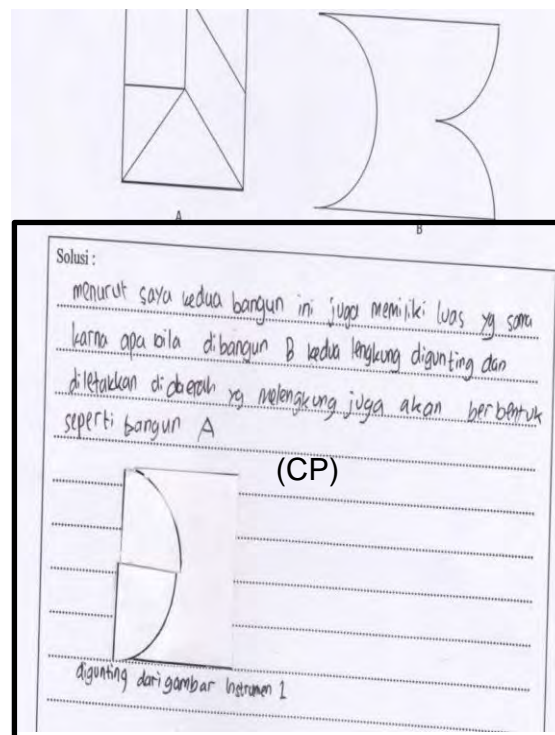 A
B
Solusi :
menurut saya kedua bangun ini juga memiliki luas yg sama
karna apa bila dibangun B kedua lengkung digunting dan
diletakkan didaerah yg melengkung juga akan berbentuk
seperti bangun A
(CP)
digunting dari gambar Instrumen 1